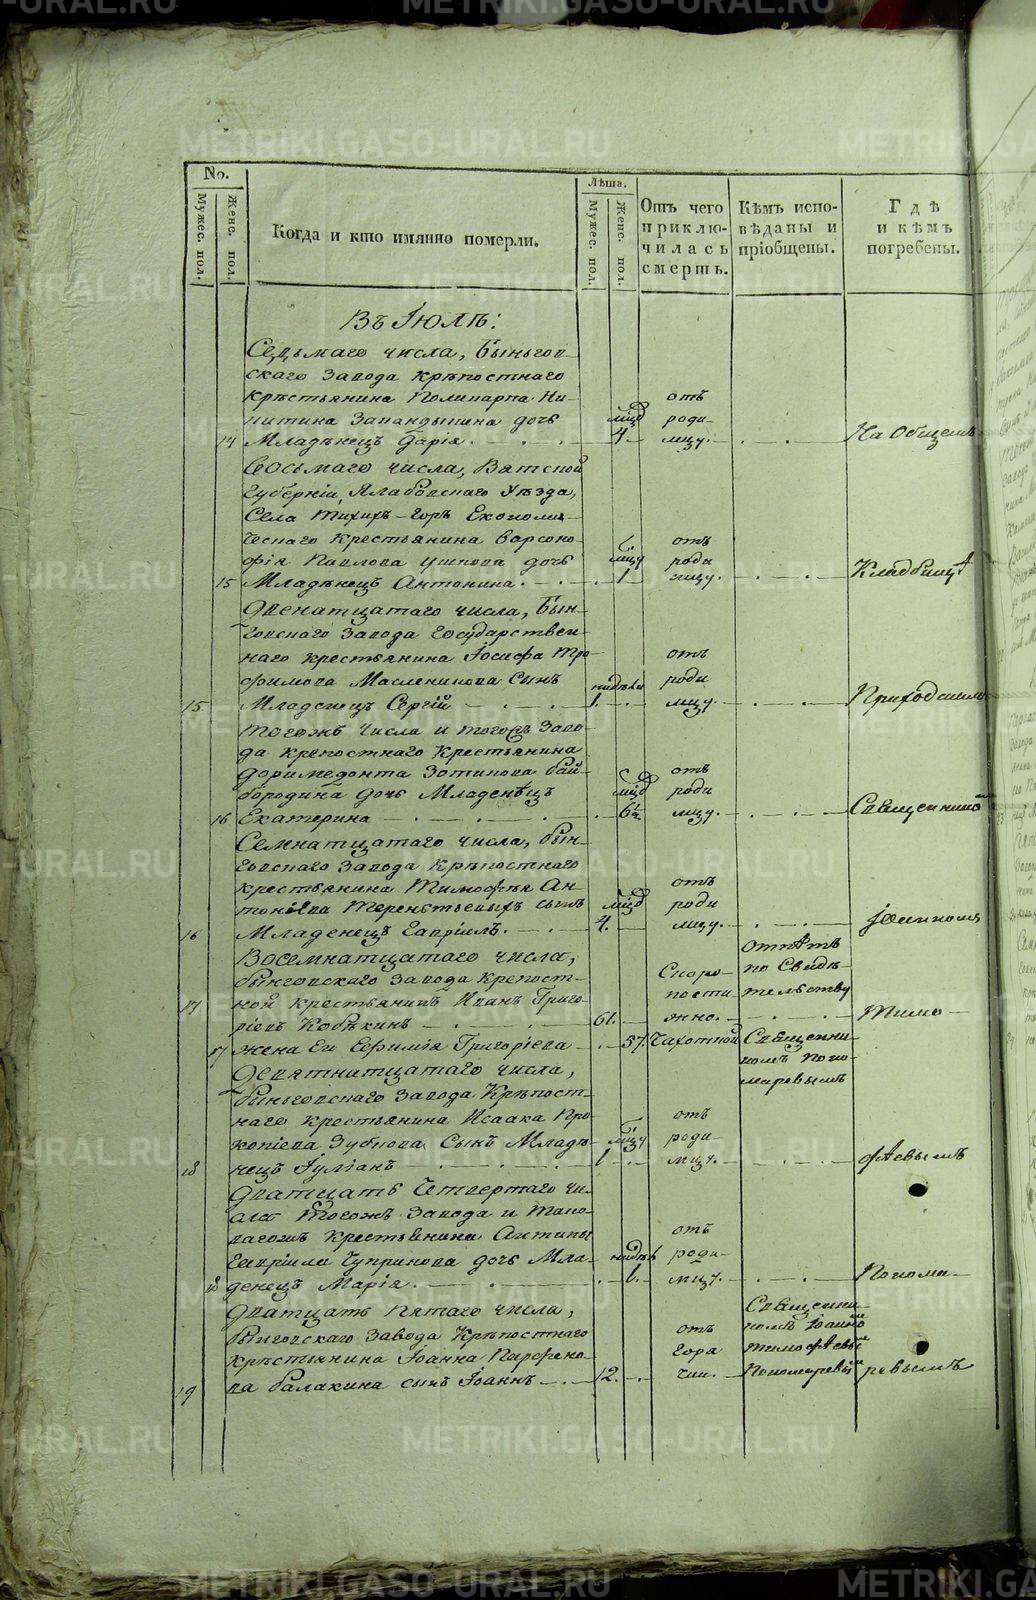 METRIKI.GASO-URAL.RU
No.
Мужес. пол.
Женс. пол.
Когда и кто имянно померли.
Лѣта.
Мужес. пол.
Женс. пол.
Отъ чего приклю-
чилась смерть.
Кѣмъ испо-
вѣданы и
прiобщены.
Гдѣ
и кѣмъ
погребены.
Въ Іюлѣ:
Седьмаго числа, Быньгов-
скаго завода крѣпостнаго
крѣстьянина Поликарпа Ни-
китина дочь
14 Младѣнецъ Дарія. 4. отъ роди-мцу. На Общемъ
Восьмаго числа, Вятской
Губерніи, Уѣзда,
Села Тихихъ-Горъ Економи-
ческаго крестьянина Варсоно-
фія Павлова Ушкова дочь
15 Младѣнецъ Антонина. 1 отъ роди мцу. Кладбищѣ
Двенатцатаго числа, Бын-
говскаго завода Государствен-
наго крестьянина Іосифа Тро-
фимова Масленикова сынъ
15 Младенецъ Сергій 1. отъ роди мцу. Приходскимъ
Тогожъ числа и тогожъ заво-
да крепостнаго Крестьянина
Доримедонта Зотикова Бай-
бородина дочь Младенѣцъ
16 Екатерина 6½ отъ роди мцу. Священникомъ
Семнатцатаго числа, Бын-
говскаго завода Крѣпостнаго
крестьянина Тимофѣя Ан-
тоніева Терентьевыхъ сынъ
16 Младенецъ Гавріилъ. 4. отъ роди мцу. Іоанномъ
Восемнатцатаго числа,
Быньговскаго завода Крепост-
ной крестьянинъ Иванъ Григо-
17 ріевъ Кобѣкинъ 61. Скоро-постижно. отпѣтъ по Свидѣ-тельству Тимо-
17 жена Ев Ефимія Григоріева 57. Чахоткой Священни-комъ Поно-маревымъ
Девятнатцатаго числа,
Быньговскаго завода Крѣпост-
наго крестьянина Исаака Про-
копіева Зубкова Сынъ Младѣ-
18 нецъ Іуліанъ 1 отъ роди-мцу. фѣевымъ
Дватцать Четвертаго чи-
сла Тогожъ завода и Тако-
вагожъ крестьянина Антипы
Гавріила Чуприкова дочь Мла-
18 денецъ Марія. 1. отъ роди-мцу. Понома-
Дватцать пятаго числа,
Быговскаго завода Крѣпостнаго
крѣстьянина Іоанна Парфено-
19 ва Балакина сынъ Іоаннъ 12. отъ горячки. Священни-комъ Іоанномъ Тимофѣевымъ Пономаревымъ ревымъ